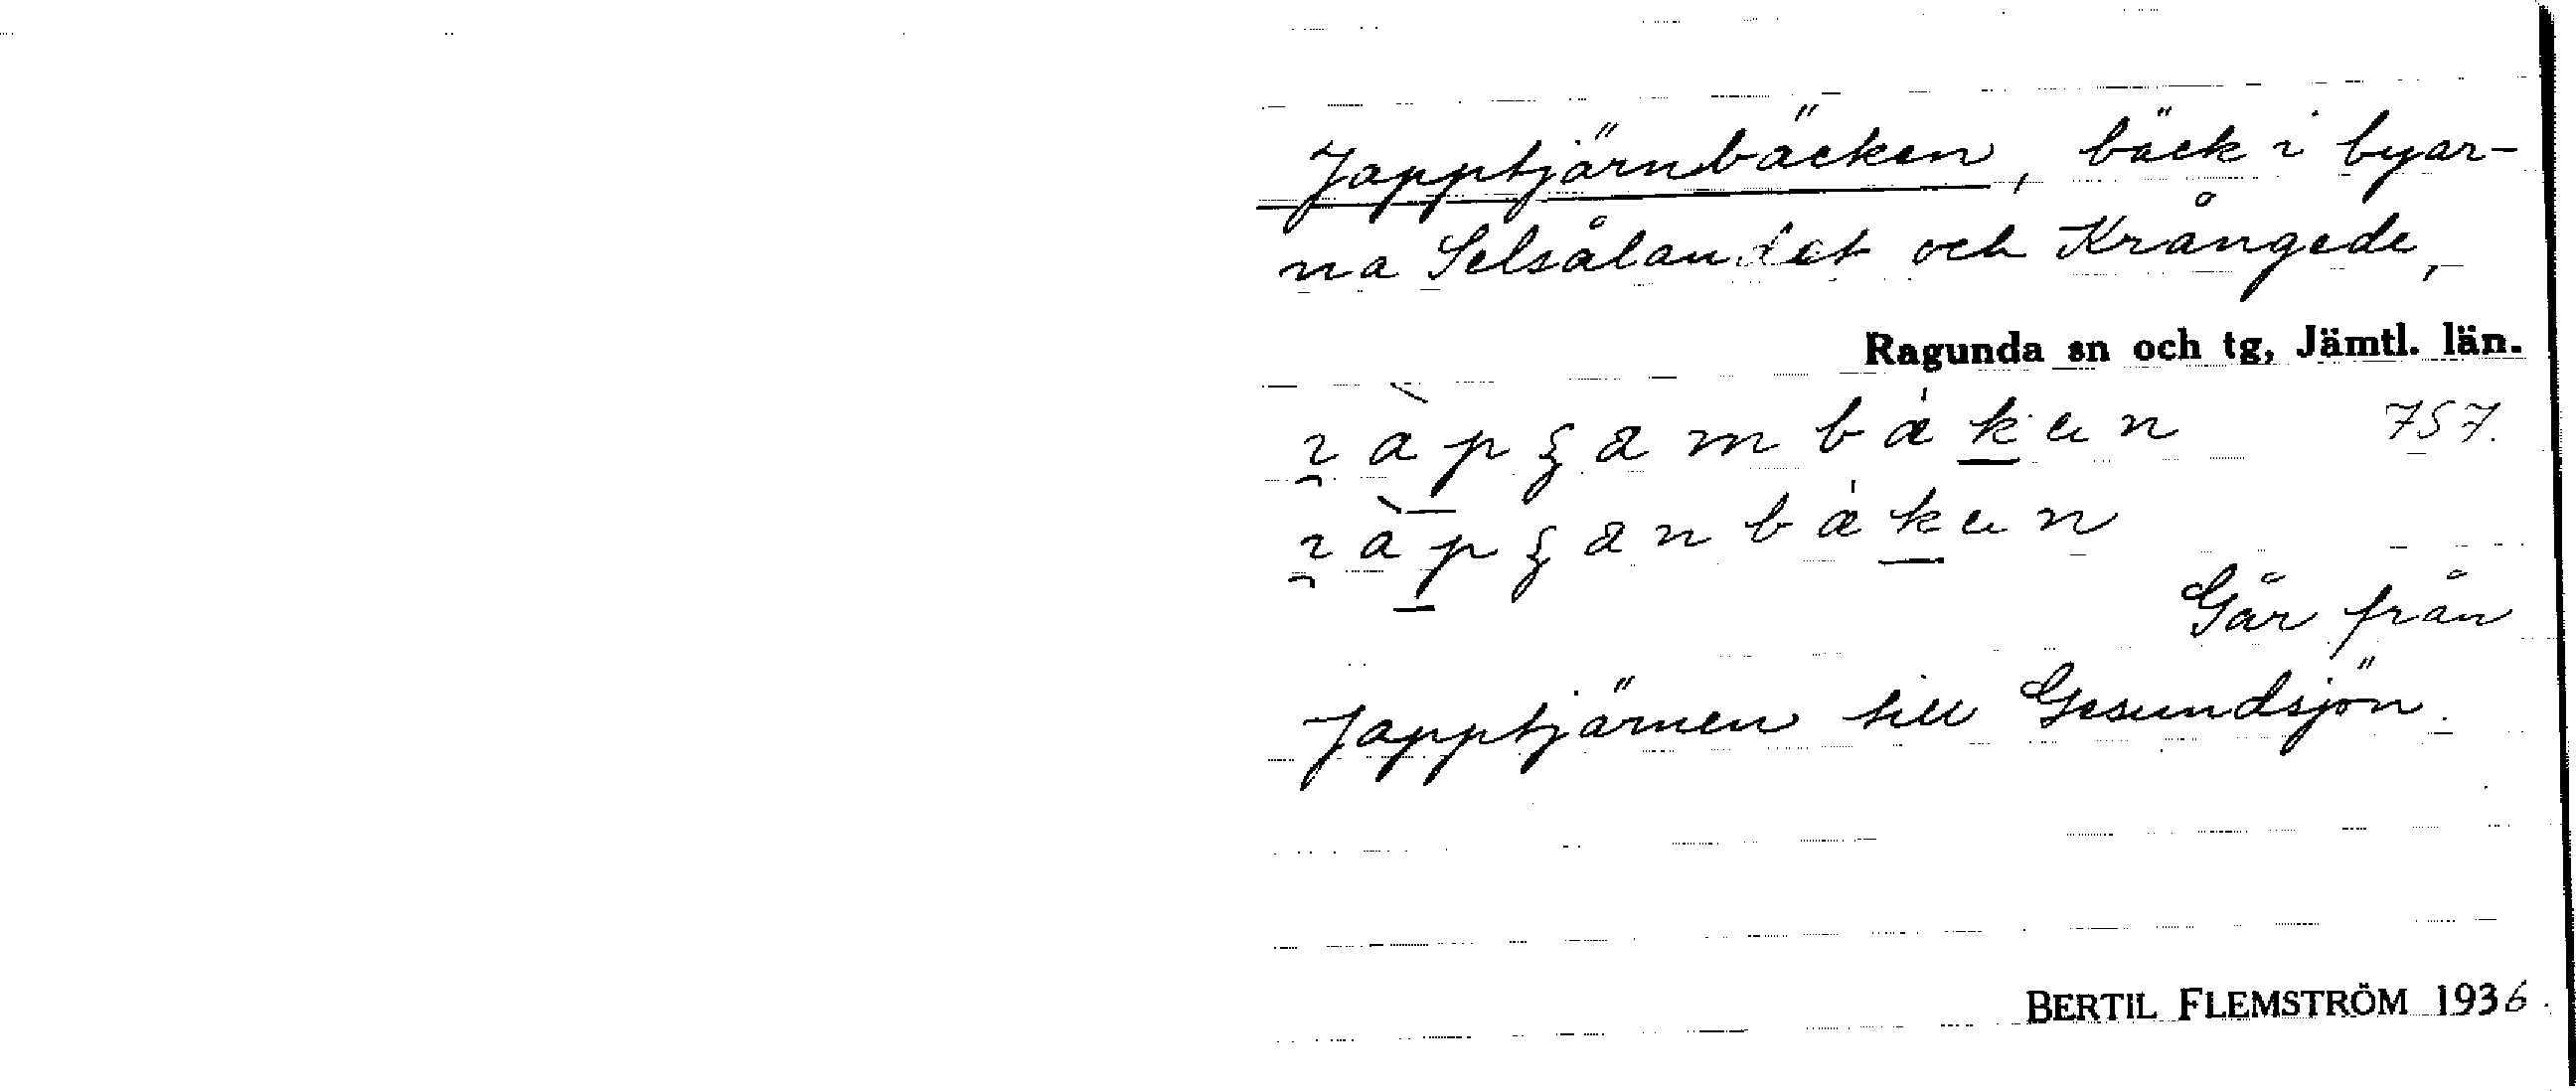 Japptjärnbäcken, bäck i byar-
na Selsålandet och Krångede,
Ragunda sn och tg, Jämtl. län.
757.
Går från
Japptjärnen till Gesundsjön.
BERTIL FLEMSTRÖM 1936.